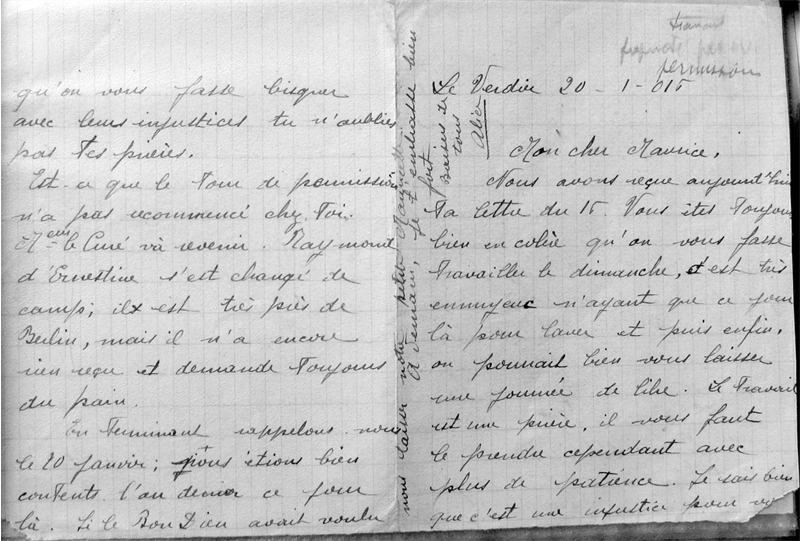 Le Verdier 20-1-015
Mon cher Maurice,
Nous avons reçue aujourd'hui
ta lettre du 15. Vous êtes toujours
bien en colère qu'on vous fasse
travailler le dimanche, c'est très
ennuyeux n'ayant que ce jour
là pour laver et puis enfin,
on pourrait bien vous laisser
une journée de libre. Le travail
est une prière, il vous faut
le prendre cependant avec
plus de patience. Je sais bien
que c'est une injustice pour vous
qu'on vous fasse bisquer
avec leurs injustices tu n'oublies
pas tes prières.
Est-ce que le tour de permission
n'a pas recommencé chez toi.
le Curé và revenir. Raymont
d'Ernestine s'est changé de
camp; il est très près de
Berlin, mais il n'a encore
rien reçu et demande toujours
du pain.
En terminant rappelons-nous
le 20 janvier; nous étions bien
contents l'an dernier ce jour
là. Si le Bon Dieu avait voulu
nous laisser notre petite
A demain, je t'embrasse bien
fort
Baisers de
tous
Alice
permission